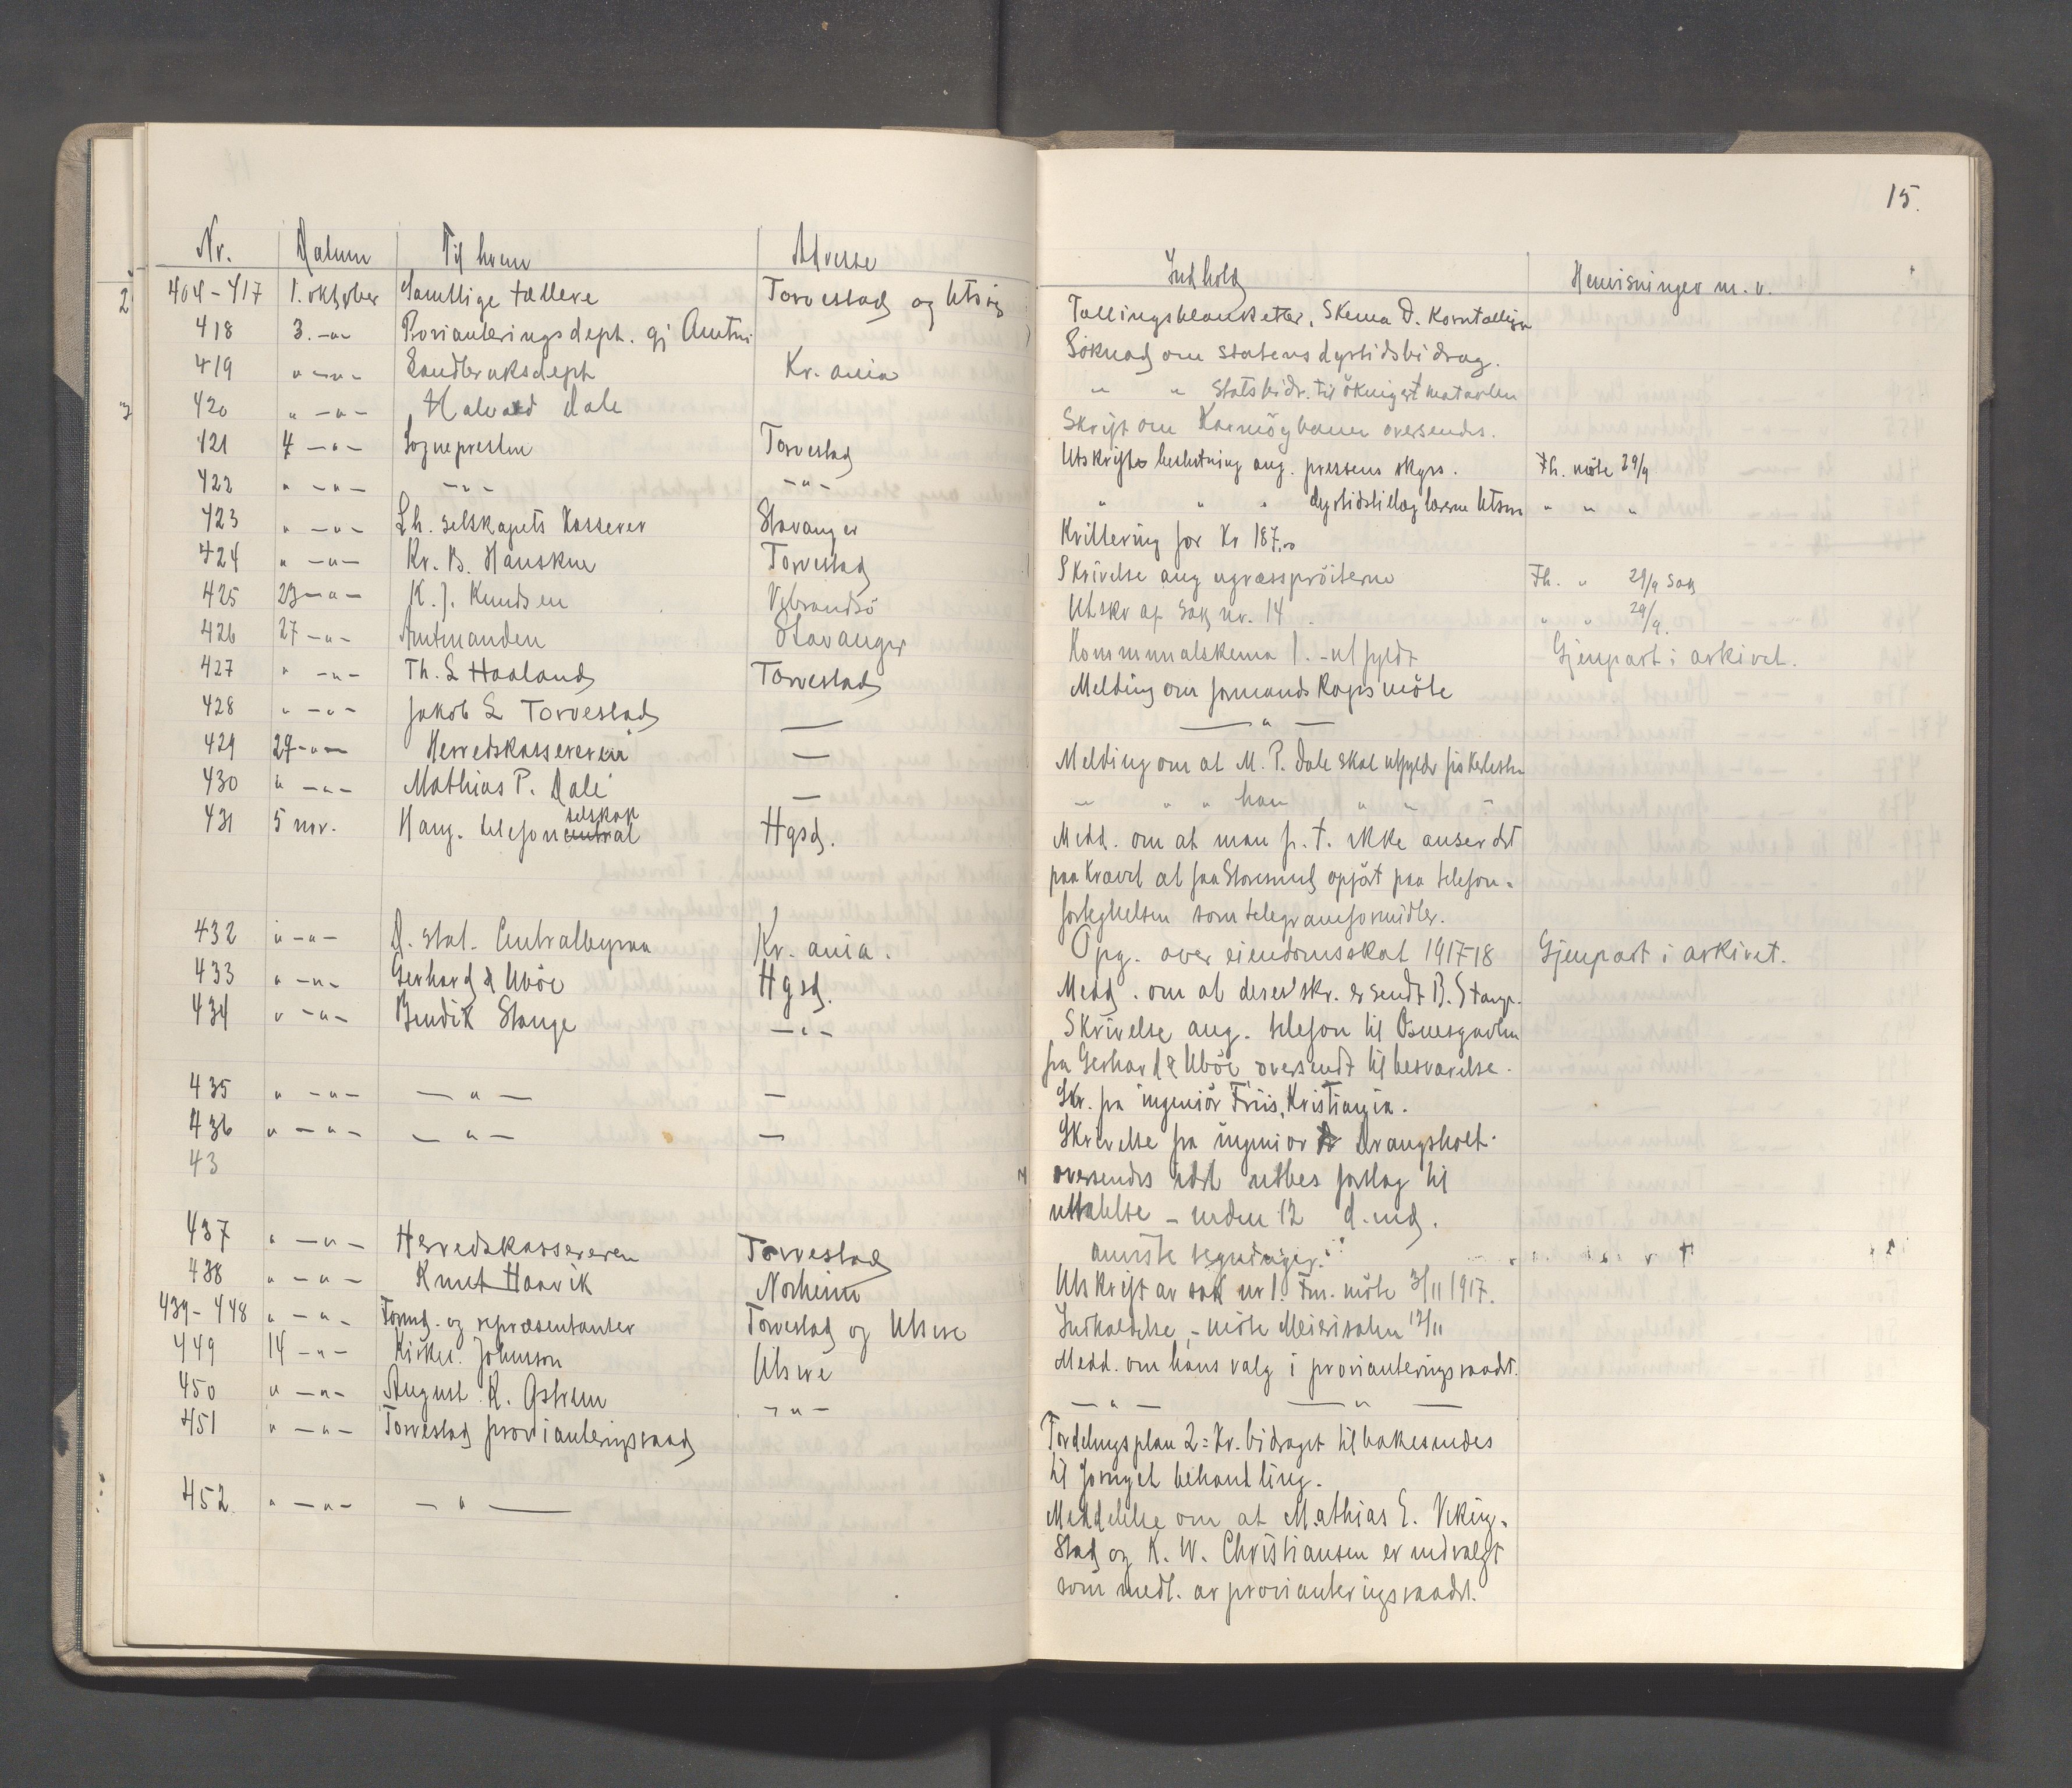 15.
Nr. Datum Til hvem Adresse Indhold Henvisninger m. v.
404-417 1. oktober Samtlige tællere Torvestad og Utsire Tællingsblanketter, Skema D. Korntælling
418 3. -"- Provianteringsdept. gj Amtm. Søknad om statens dyrtidsbidrag.
419 " -"- Landbruksdept Kr.ania " " Statsbidr. til økning av matavlen
420 " -"- Halvard Dale Skrift om Karmøybanen oversendes.
421 4 -"- Sognepresten Torvestad Utskrift beslutning ang. prestens skyss. Fh. møte 29/9
422 " -"- -"- -"- " " " dyrtidstillæg lærerne Utsire " " "
423 " -"- Lh. selskapets kasserer Stavanger Kvittering for Kr 187.00
424 " -"- Kr. B. Hansken Torvestad Skrivelse ang ugræssprøiterne Fh. " 29/9 sak
425 23 -"- K. J. Knudsen Vibrandsø Utskr af sak nr. 14 " " 29/9.
426 27 -"- Amtmanden Stavanger Kommunalskema 1. - utfyldt Gjenpart i arkivet.
427 " -"- Th. L Haaland Torvestad Melding om formandskapsmöte
428 " -"- Jakob L Torvestad — — " —
429 29 -"- Herredskassereren — Melding om at M. P. Dale skal utfylde fiskerlisten
430 " -"- Mathias P. Dale — " " " han " " "
431 5 nov. Haug. telefoncentral selskap Hgsd. Medd. om at man p. t. ikke anser det
paakrævet at faa Storesund opført paa telefon-
forteghelsen som telegramformidler.
432 " -"- D. stat. Centralbyraa Kr.ania. Opg. over eiendomsskat 1917-18 Gjenpart i arkivet.
433 " -"- Gerhard & Ubøe Hgsd. Medd. om at deres skr. er sendt B. Stange.
434 " -"- Bendik Stange -"- Skrivelse ang. telefon til Osnesgavlen
fra Gerhard & Ubøe oversendt til besvarelse.
435 " -"- — " — — Skr. fra ingeniør Friis, Kristiania.
436 " -"- — " — — Skrivelse fra ingeniør Drangsholt
43 oversendes idet utbes forslag til
uttalelse - inden 12 d. md.
437 " -"- Herredskassereren Torvestad
438 " -"- Knut Haavik Norheim Utskrift av sak nr 1. Fm. möte 3/11 1917.
439-448 " -"- Formd. og repræsentanter Torvestad og Utsire Indkaldelse, - möte Meierisalen 12/11
449 14 -"- Kirkes. Johnson Utsire Medd. om hans valg i provianteringsraadet.
450 " -"- August K. Astrem -"- — " — — " —
451 " -"- Torvestad provianteringsraad Fordelingsplan 2: Kr. bidraget tilbakesendes
til fornyet behandling.
452. " -"- — " — Meddelelse om at Mathias E. Viking-
stad og K. W. Christiansen er indvalgt
som medl. av provianteringsraadet.